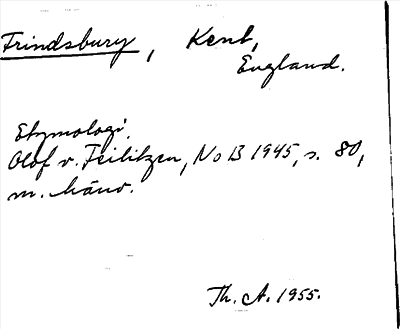 Frindsbury, Kent,
England.
Etymologi.
Olof v. Feilitzen, NoB 1945, s. 80,
m. hänv.
Th. A. 1955.